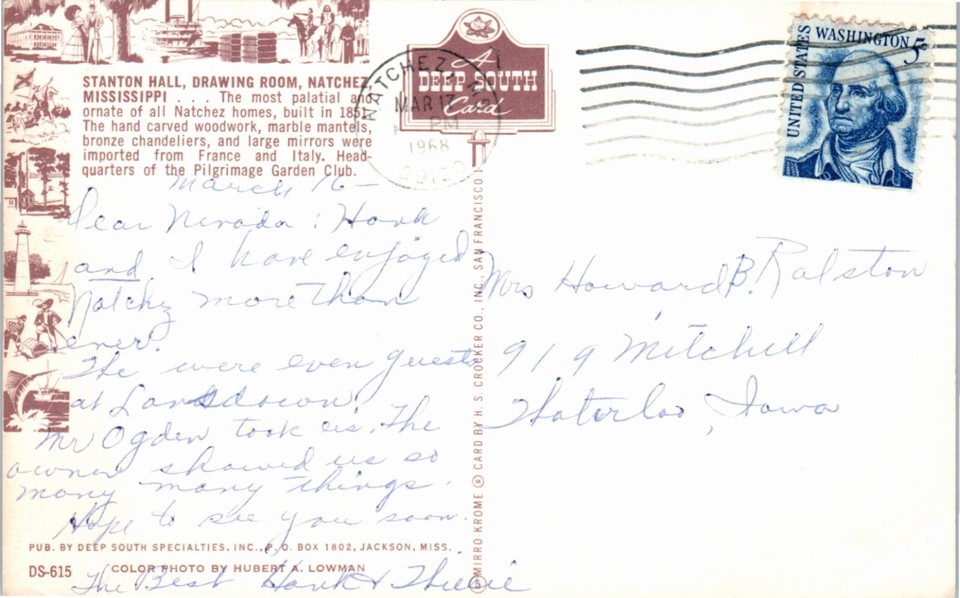 STANTON HALL, DRAWING ROOM, NATCHEZ
MISSISSIPPI . . . The most palatial a
ornate of all Natchez homes, built in 1851
The hand carved woodwork, marble mantels,
bronze chandeliers, and large mirrors were
imported from France and Italy. Head-
quarters of the Pilgrimage Garden Club.
March 16 —
Dear Nevada : Hank
and I have enjoyed
Natchz more than
ever.
The were even guests
at Landsdown.
Mr Ogden took us. The
owner showed us so
many many things.
Hope to see you soon.
The Best Hank &
PUB. BY DEEP SOUTH SPECIALTIES, INC., P. O. BOX 1802, JACKSON, MISS.
DS-615 COLOR PHOTO BY HUBERT A. LOWMAN
A
DEEP SOUTH
Card
NATCHEZ,
MAR 17
PM
1968
MIRRO-KROME ® CARD BY H. S. CROCKER CO., INC., SAN FRANCISCO 1
UNITED STATES
WASHINGTON 5¢
Mrs Howard B. Ralston
919 Mitchell
Waterloo, Iowa